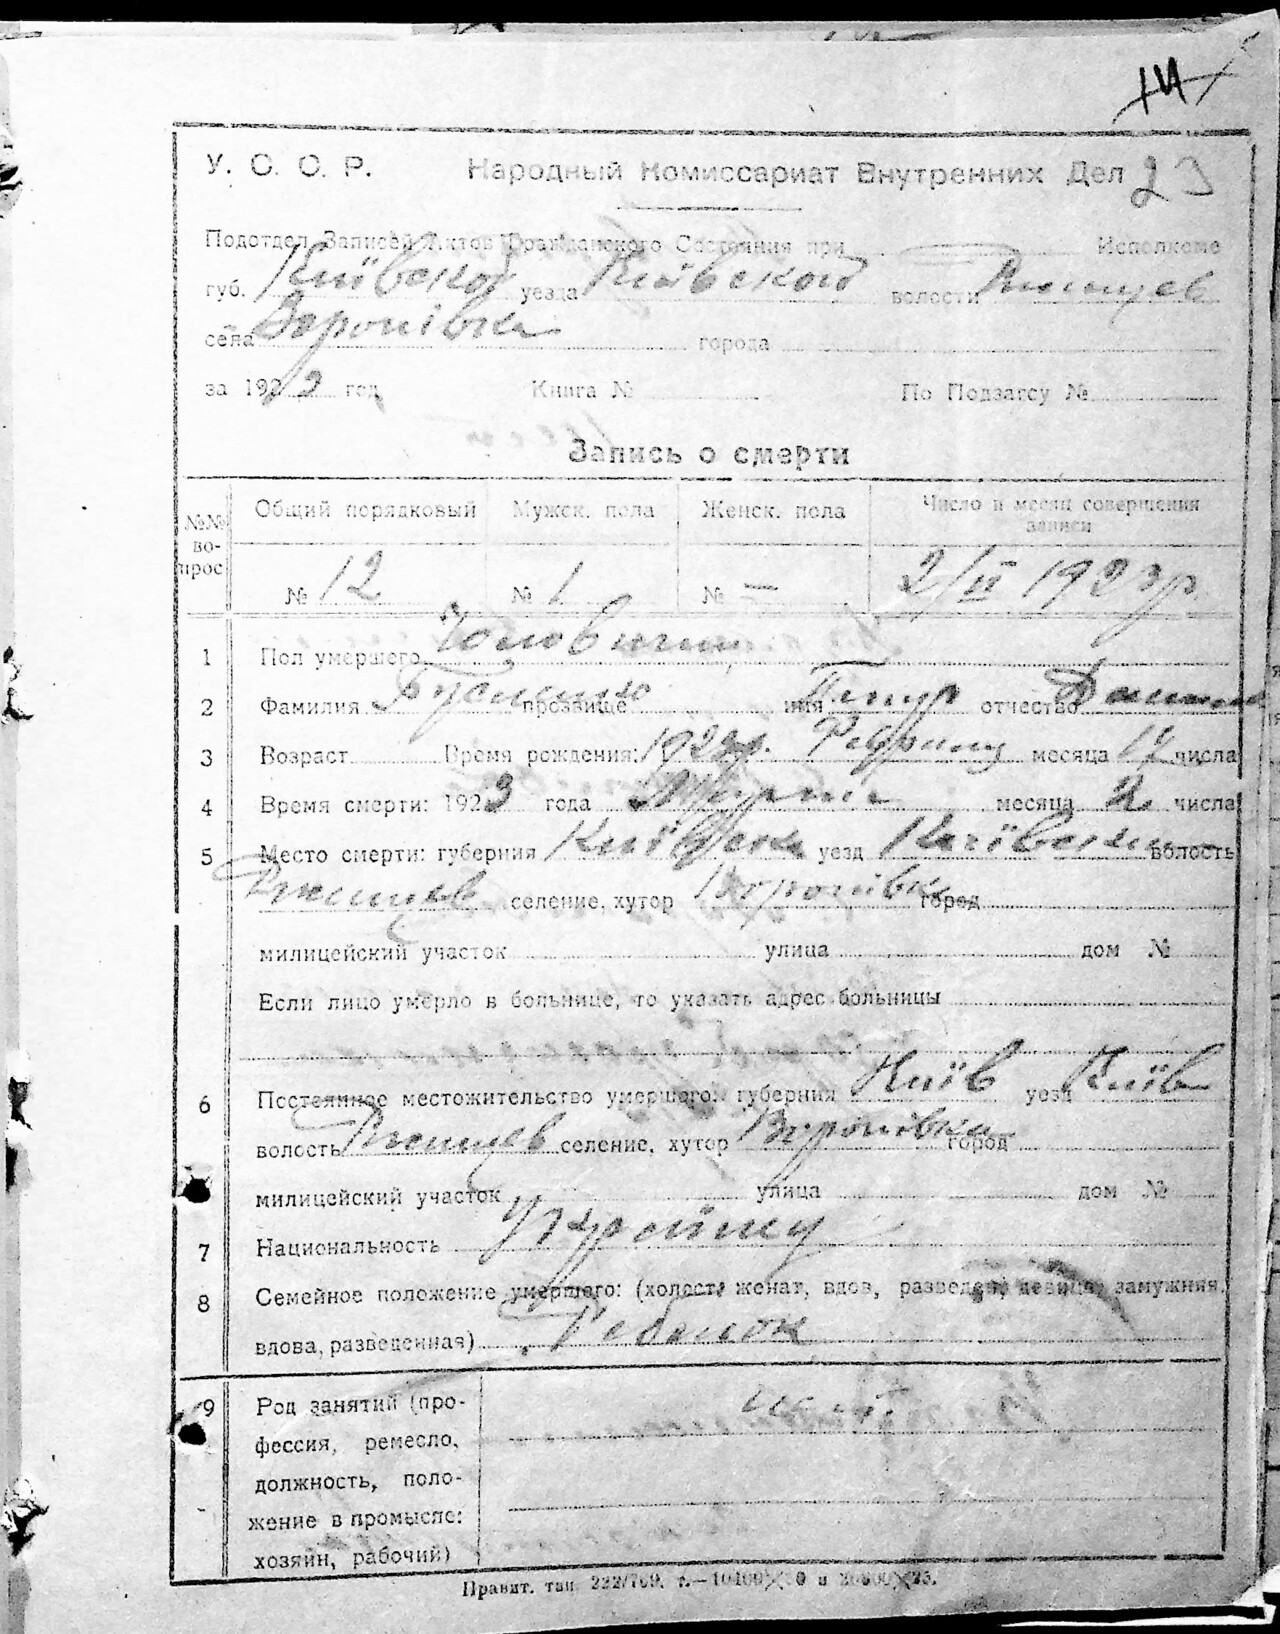 14
У. С. С. Р. Народный Комиссариат Внутренних Дел 23
Подотдел Записей Актов Гражданского Состояния при Исполкоме
губ. Київской уезда Київской волости Ржищев
села Воронівка города
за 1923 год Книга № По Подзагсу №
Запись о смерти
№№ вопрос Общий порядковый Мужск. пола Женск. пола Число и месяц совершения записи
№ 12 № 1 № — 2/II 1923 р.
1 Пол умершего Чоловичий
2 Фамилия прозвище имя Петур отчество
3 Возраст Время рождения: 1923р. месяца числа
4 Время смерти: 1923 года месяца 2 числа
5 Место смерти: губерния Київска уезд Київский волость
Ржищев селение, хутор Воронівка город
милицейский участок улица дом №
Если лицо умерло в больнице, то указать адрес больницы
6 Постоянное местожительство умершого: губерния Київ уезд Київ
волость Ржищев селение, хутор Воронівка город
милицейский участок улица дом №
7 Национальность
8 Семейное положение умершего: (холост, женат, вдов, разведен, девица, замужняя,
вдова, разведенная) Ребенок
9 Род занятий (про-
фессия, ремесло,
должность, поло-
жение в промысле:
хозяин, рабочий)
Правит. тип. 222/769.